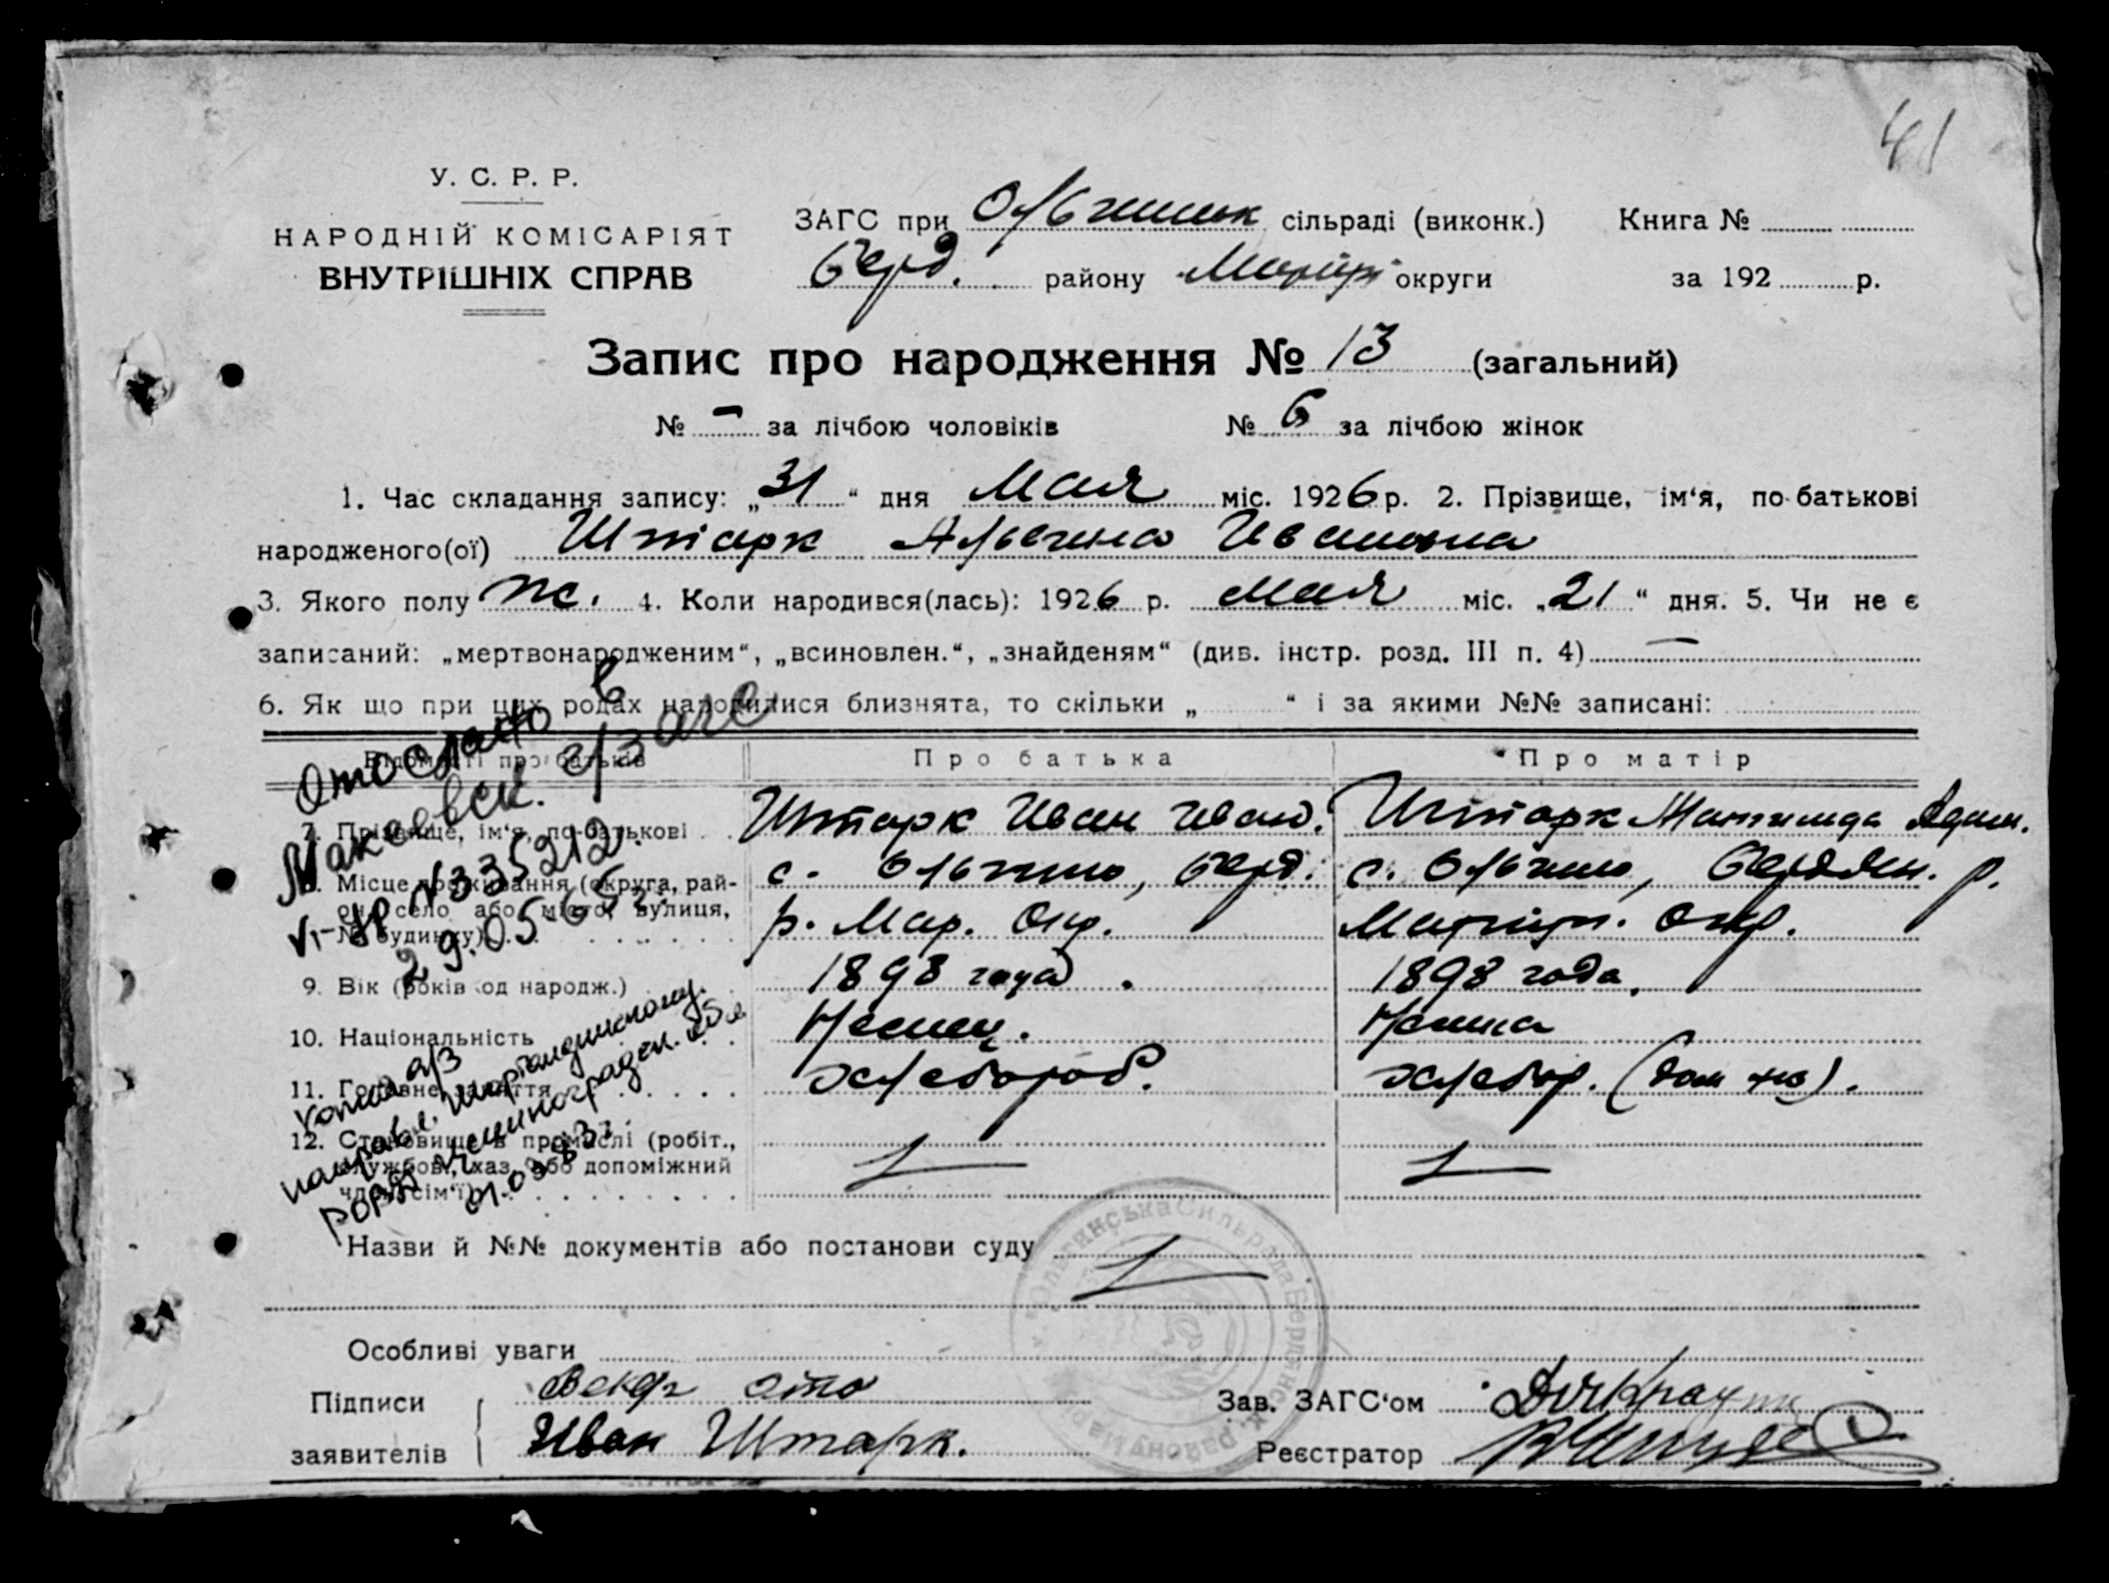 41
У. С. Р. Р.
НАРОДНІЙ КОМІСАРІЯТ
ВНУТРІШНІХ СПРАВ
ЗАГС при Ольгинск сільраді (виконк.) Книга №
Берд. району Маріуп округи за 192 р.
Запис про народження № 13 (загальний)
№ – за лічбою чоловіків № 6 за лічбою жінок
1. Час складання запису: „31“ дня Мая міс. 1926 р. 2. Прізвище, ім‘я, по-батькові
народженого(ої) Штарк Альвина Ивановна
3. Якого полу ж. 4. Коли народився(лась): 1926 р. Мая міс. „21“ дня. 5. Чи не є
записаний: „мертвонародженим“, „всиновлен.“, „знайденям“ (див. інстр. розд. III п. 4) —
6. Як що при цих родах народилися близнята, то скільки „ “ і за якими №№ записані:
Відомості про батьків Про батька Про матір
7. Прізвище, ім‘я, по-батькові Штарк Иван Иван. Штарк Адам.
8. Місце проживання (округа, рай- с. Ольгино, Берд. с. Ольгино, Бердян. р.
он, село або місто, вулиця, р. Мар. Окр. Маріуп. Окр.
№ будинку)
9. Вік (років од народж.) 1898 года. 1898 года.
10. Національність Немец. Немка
11. Головне заняття хлебороб. хлебор. (дом хоз).
12. Становище в промислі (робіт.,
службов., хаз. або допоміжний
член сім‘ї)
Отослано в
Макеевск. г/загс
№335212
29.05.65г.
копия а/з
направл. Шортандинскому
Целиноград. обл
Назви й №№ документів або постанови суду
Ольгинська Сильрада Берданськ. району
Особливі уваги
Підписи
заявителів
Отто
Иван Штарк.
Зав. ЗАГС‘ом
Реєстратор